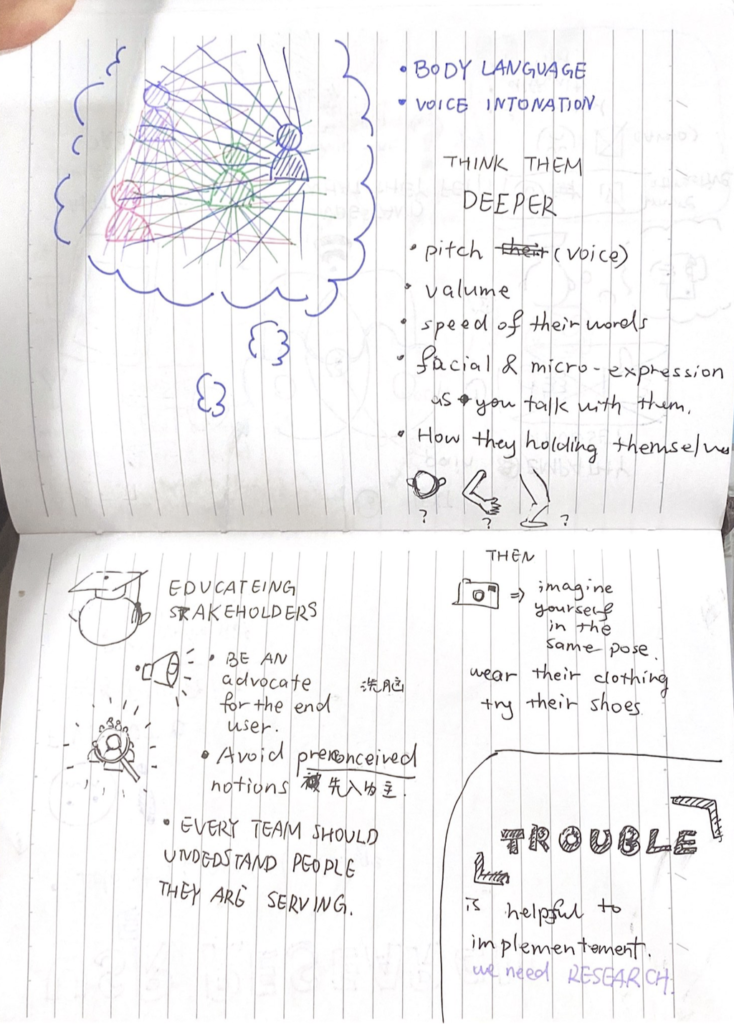 • BODY LANGUAGE
• VOICE INTONATION
THINK THEM
DEEPER
• pitch their (voice)
• valume
• speed of their words
• facial & micro-expression
as you talk with them.
• How they holding themselves
? ? ?
EDUCATEING
STAKEHOLDERS
• BE AN
advocate
for the end
user.
洗脑
• Avoid preconceived
notions 被先入为主.
• EVERY TEAM SHOULD
UNDEDSTAND PEOPLE
THEY ARE SERVING.
THEN
⇒ imagine
yourself
in the
same pose.
wear their clothing
try their shoes
TROUBLE
is helpful to
implementement.
we need RESEARCH.